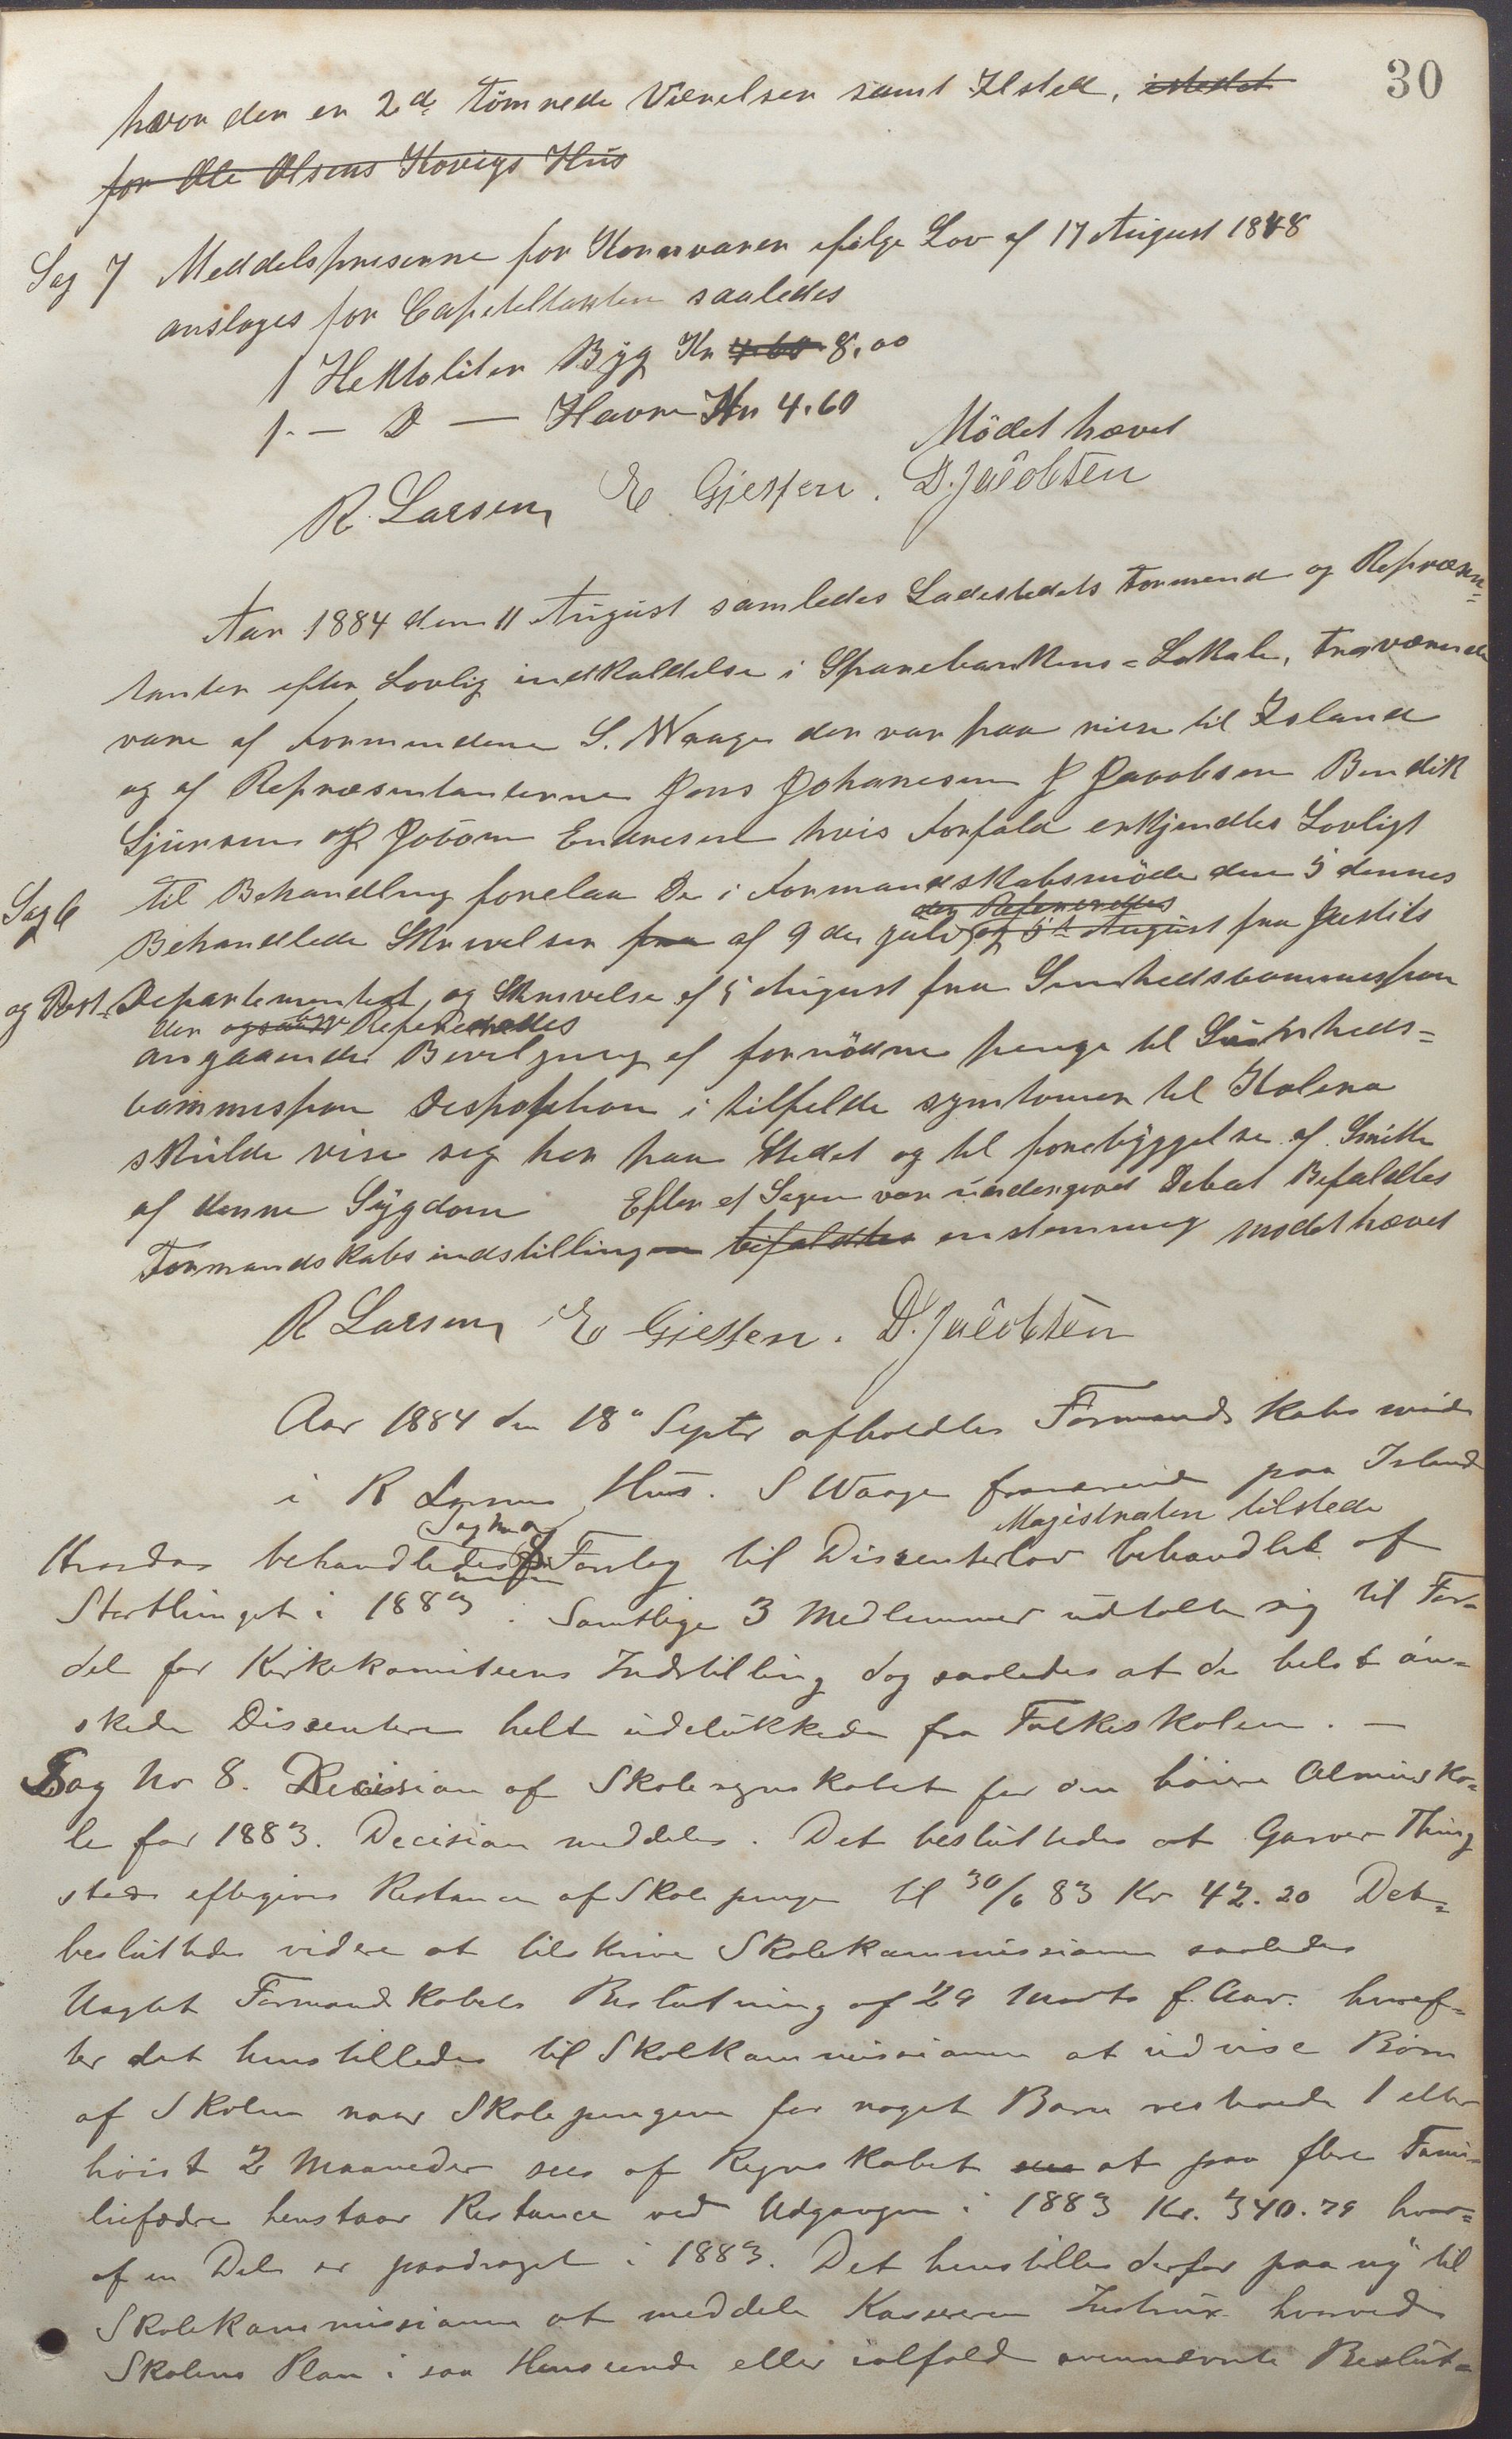 30
hvor der er 2de tömrede Værelser samt Ilsted, istedet
for Ole Olsens Hovigs Hus
Sag 7 Meddelspriserne for Kornvarer efölge Lov af 17 August 1848
anslages for Capiteltaxten saaledes
1 Hektoliter Byg Kr 4.60 8.00
1 - D - Havre Kr 4.60
Mödet hævet
R. Larsen E Gjessen. D. Jacobsen
Aar 1884 den 11 August samledes Ladestedets Formænd og Repræsen=
tanter efter Lovlig indkaldelse i Sparebankens=Lokale, Fraværende
vare af Formendene S. Waage der var paa reise til Island
og af Repræsentanterne Jens Johanesen J Jacobsen Bendik
Sjursen og Endresen hvis Forfald erkjendtes Lovligt
Sag 6 Til Behandling forelaa De i Formandskabsmöde den 5 dennes
der Refereredes
Behandlede Skrivelser fra af 9de juli og 5te August fra Justits
og Post Departementet, og Skrivelse af 5 August fra Sundhedscommission
der ogsaa Refereredes
angaaende Bevilgning af fornödne penge til Sunheds=
commission Desposition i tilfelde symtomer til Kolera
skulde vise seg her paa Stedet og til forebyggelse af Smitte
af denne Sygdom Efter at Sagen var undergived Debat Befaldtes
Formandskabsindstillingen bifaldtes enstemmig mödet hævet
R Larsen E Gjessen. D. Jacobsen
Aar 1884 den 18de Septr afholdtes Formandskabsmöde
i R Larsens Hus. S Waage fraværende paa Island
Magistraten tilstede
Sag No 9
Hvordan behandledes Forslag til Dissenterlov behandlet af
Storthinget i 1883. Samtlige 3 Medlemmer udtalte sig til For=
del for Kirkekomiteens Indstilling dog saaledes at de helst ön=
skede Dissentere helt udelukkede fra Folkeskolen. —
Sag No 8. Decision af Skoleregnskabet for den höiere Almuesko=
le for 1883. Decision meddeles. Det besluttedes at Garver Thing
sted eftergives Restance af Skolepenge til 30/6 83 Kr 42.20 Det=
besluttedes videre at tilskrive Skolekommissionen saaledes
Uagtet Formandskabets Beslutning af 29 Marts f. Aar. hvoref=
ter det henstilledes til Skolekommissionen at udvise Börn
af Skolen naar Skolepengene for noget Barn resterede 1 eller
höist 2 Maaneder sees af Regnskabet sees at paa flere Fami=
liefædre henstaar Restance ved Udgangen i 1883 Kr. 340.79 hvor=
af en Del er paadraget i 1883. Det henstilles derfor paa ny til
Skolekommissionen at meddele Kassereren Instrux hvorved
Skolens Plan i saa Henseende eller ialfald ovennævnte Beslut=